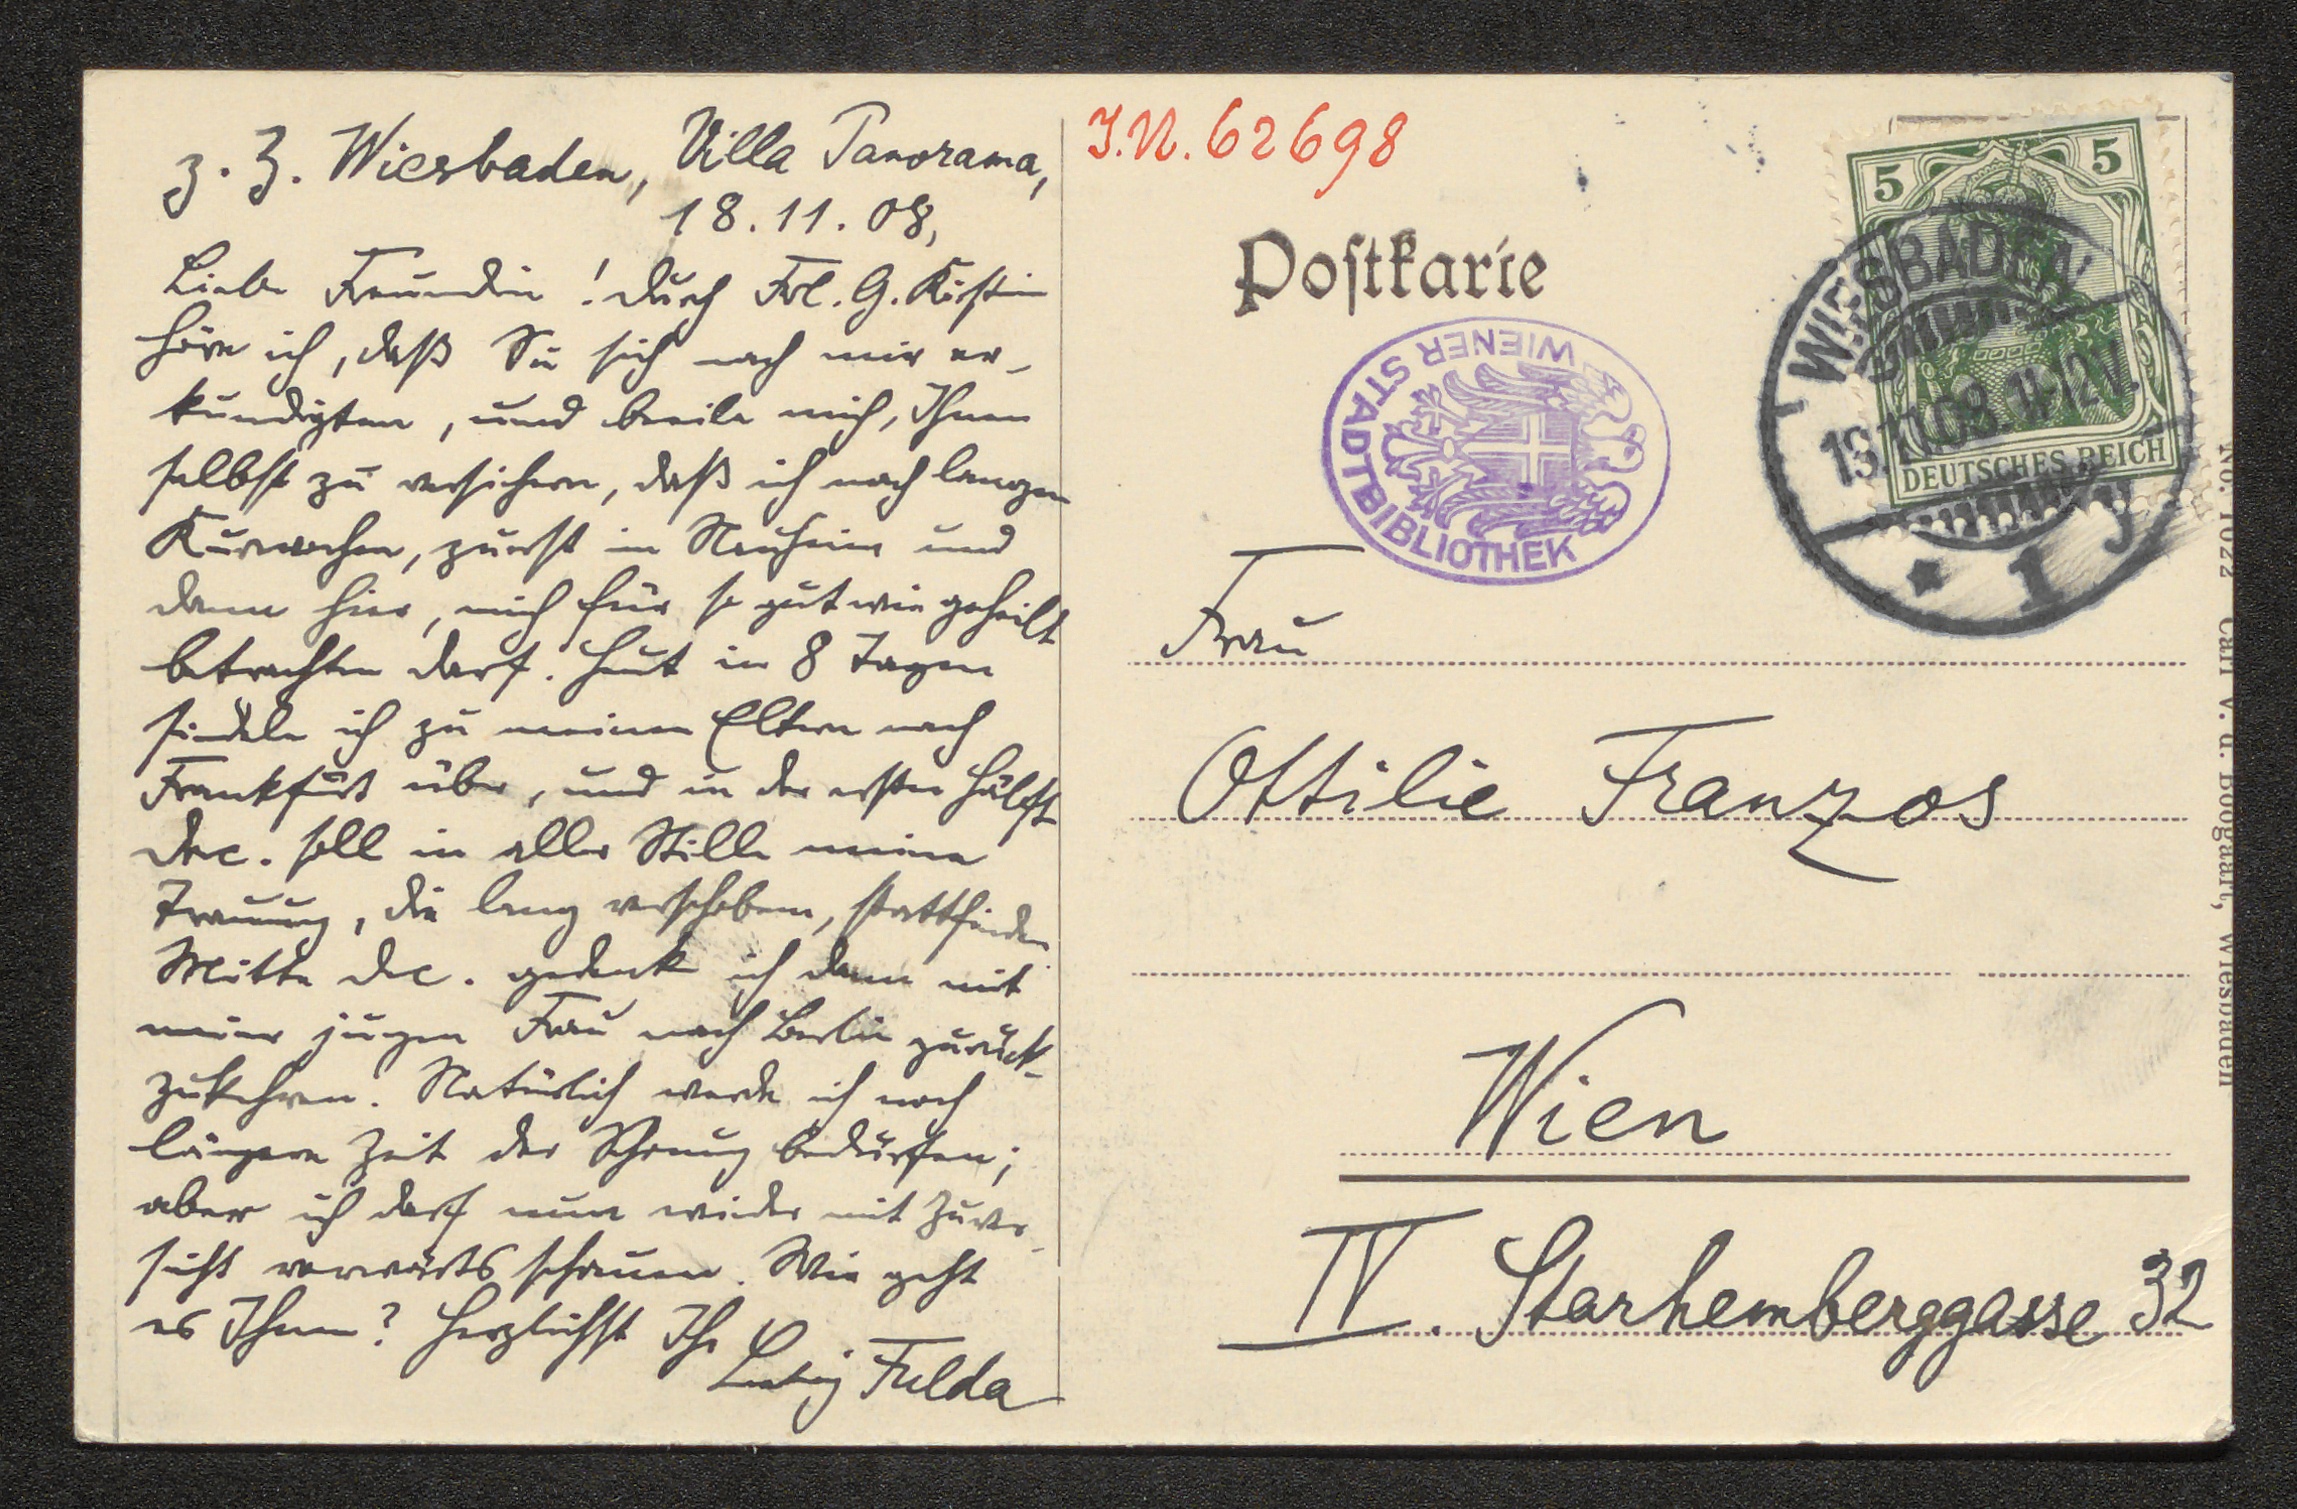 z. Z. Wiesbaden, Villa Panorama,
18.11.08,
Liebe Freundin! Durch Frl. G.
höre ich, daß Sie sich nach mir er-
kundigten, und beeile mich, Ihnen
selbst zu versichern, daß ich nach langen
Kurwochen, zuerst in Nauheim und
dann hier, mich für so gut wie geheilt
betrachten darf. Heut in 8 Tagen
siedele ich zu meinen Eltern nach
Frankfurt über, und in der ersten Hälfte
Dec. soll in aller Stille meine
Trauung, die lang verschobene, stattfinden
Mitte Dec. gedenke ich dann mit
meiner jungen Frau nach Berlin zurück-
zukehren. Natürlich werde ich noch
längere Zeit der Schonung bedürfen;
aber ich darf nun wieder mit Zuver-
sicht vorwärts schauen. Wie geht
es Ihnen? Herzlichst Ihr
Ludwig Fulda
I.N. 62698
Postkarte
WIENER STADTBIBLIOTHEK
5 5
DEUTSCHES REICH
WIESBADEN
11.08. 11-12V.
* 1
Frau
Ottilie Franzos
Wien
IV. Starhemberggasse 32
No. 1022 Carl v. d. Boogaart, Wiesbaden